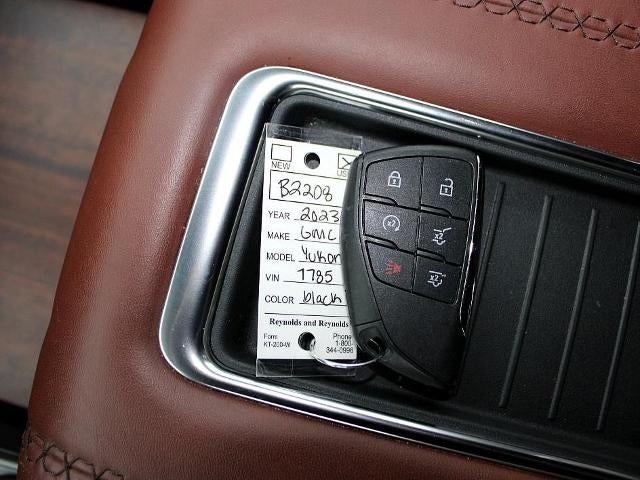 NEW
B2208
YEAR 2023
MAKE GMC
MODEL Yukon
VIN 7785
COLOR black
Reynolds and Reynolds
Form Phone
KT-200-W 1-800-
344-0996
x2
x2
x2